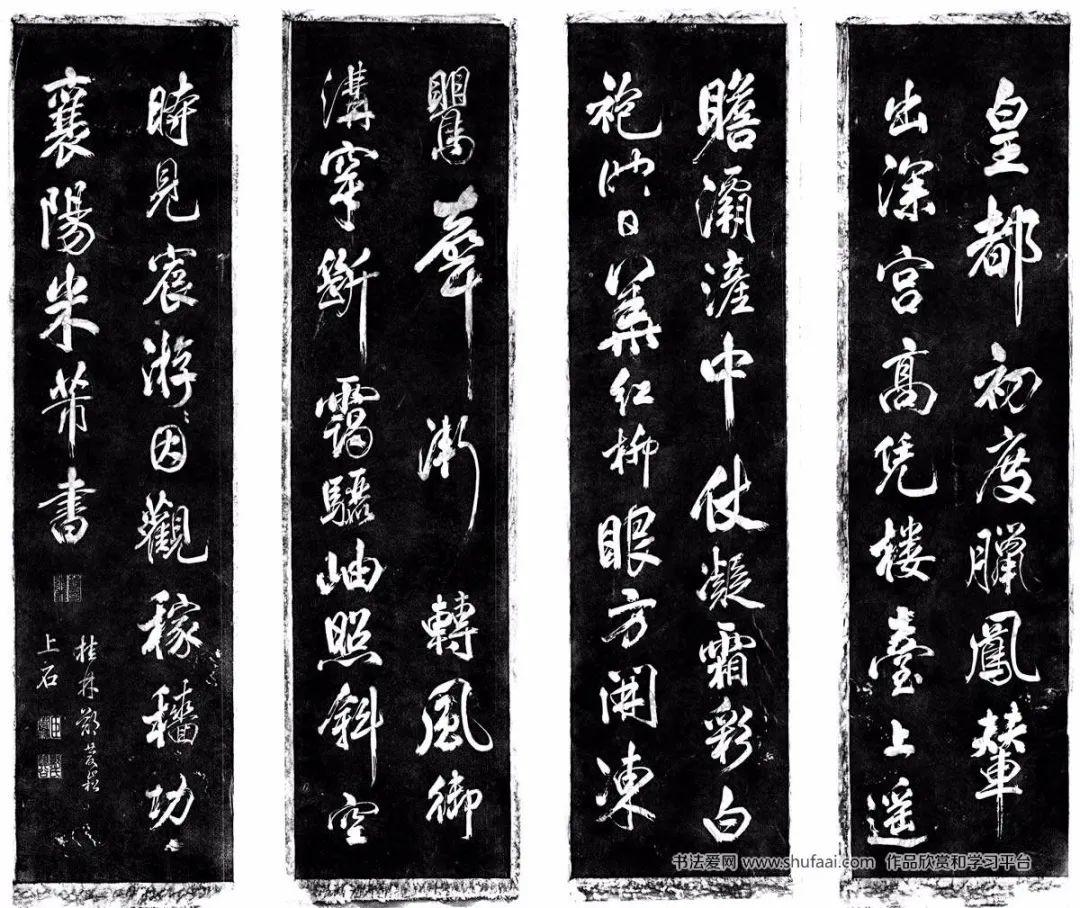 皇都初度臘鳳輦
出深宫高凭楼臺上遥
瞻灞滻中仗凝霜彩白
袍映日華紅柳眼方開凍
鸎聲漸轉風御
溝穿斷靄驪岫照斜空
時見宸游因觀稼穡功
襄陽米芾書
桂林
上石
书法爱网 www.shufaai.com 作品欣赏和学习平台